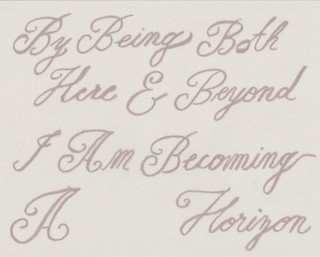 By Being Both
Here & Beyond
I Am Becoming
A Horizon